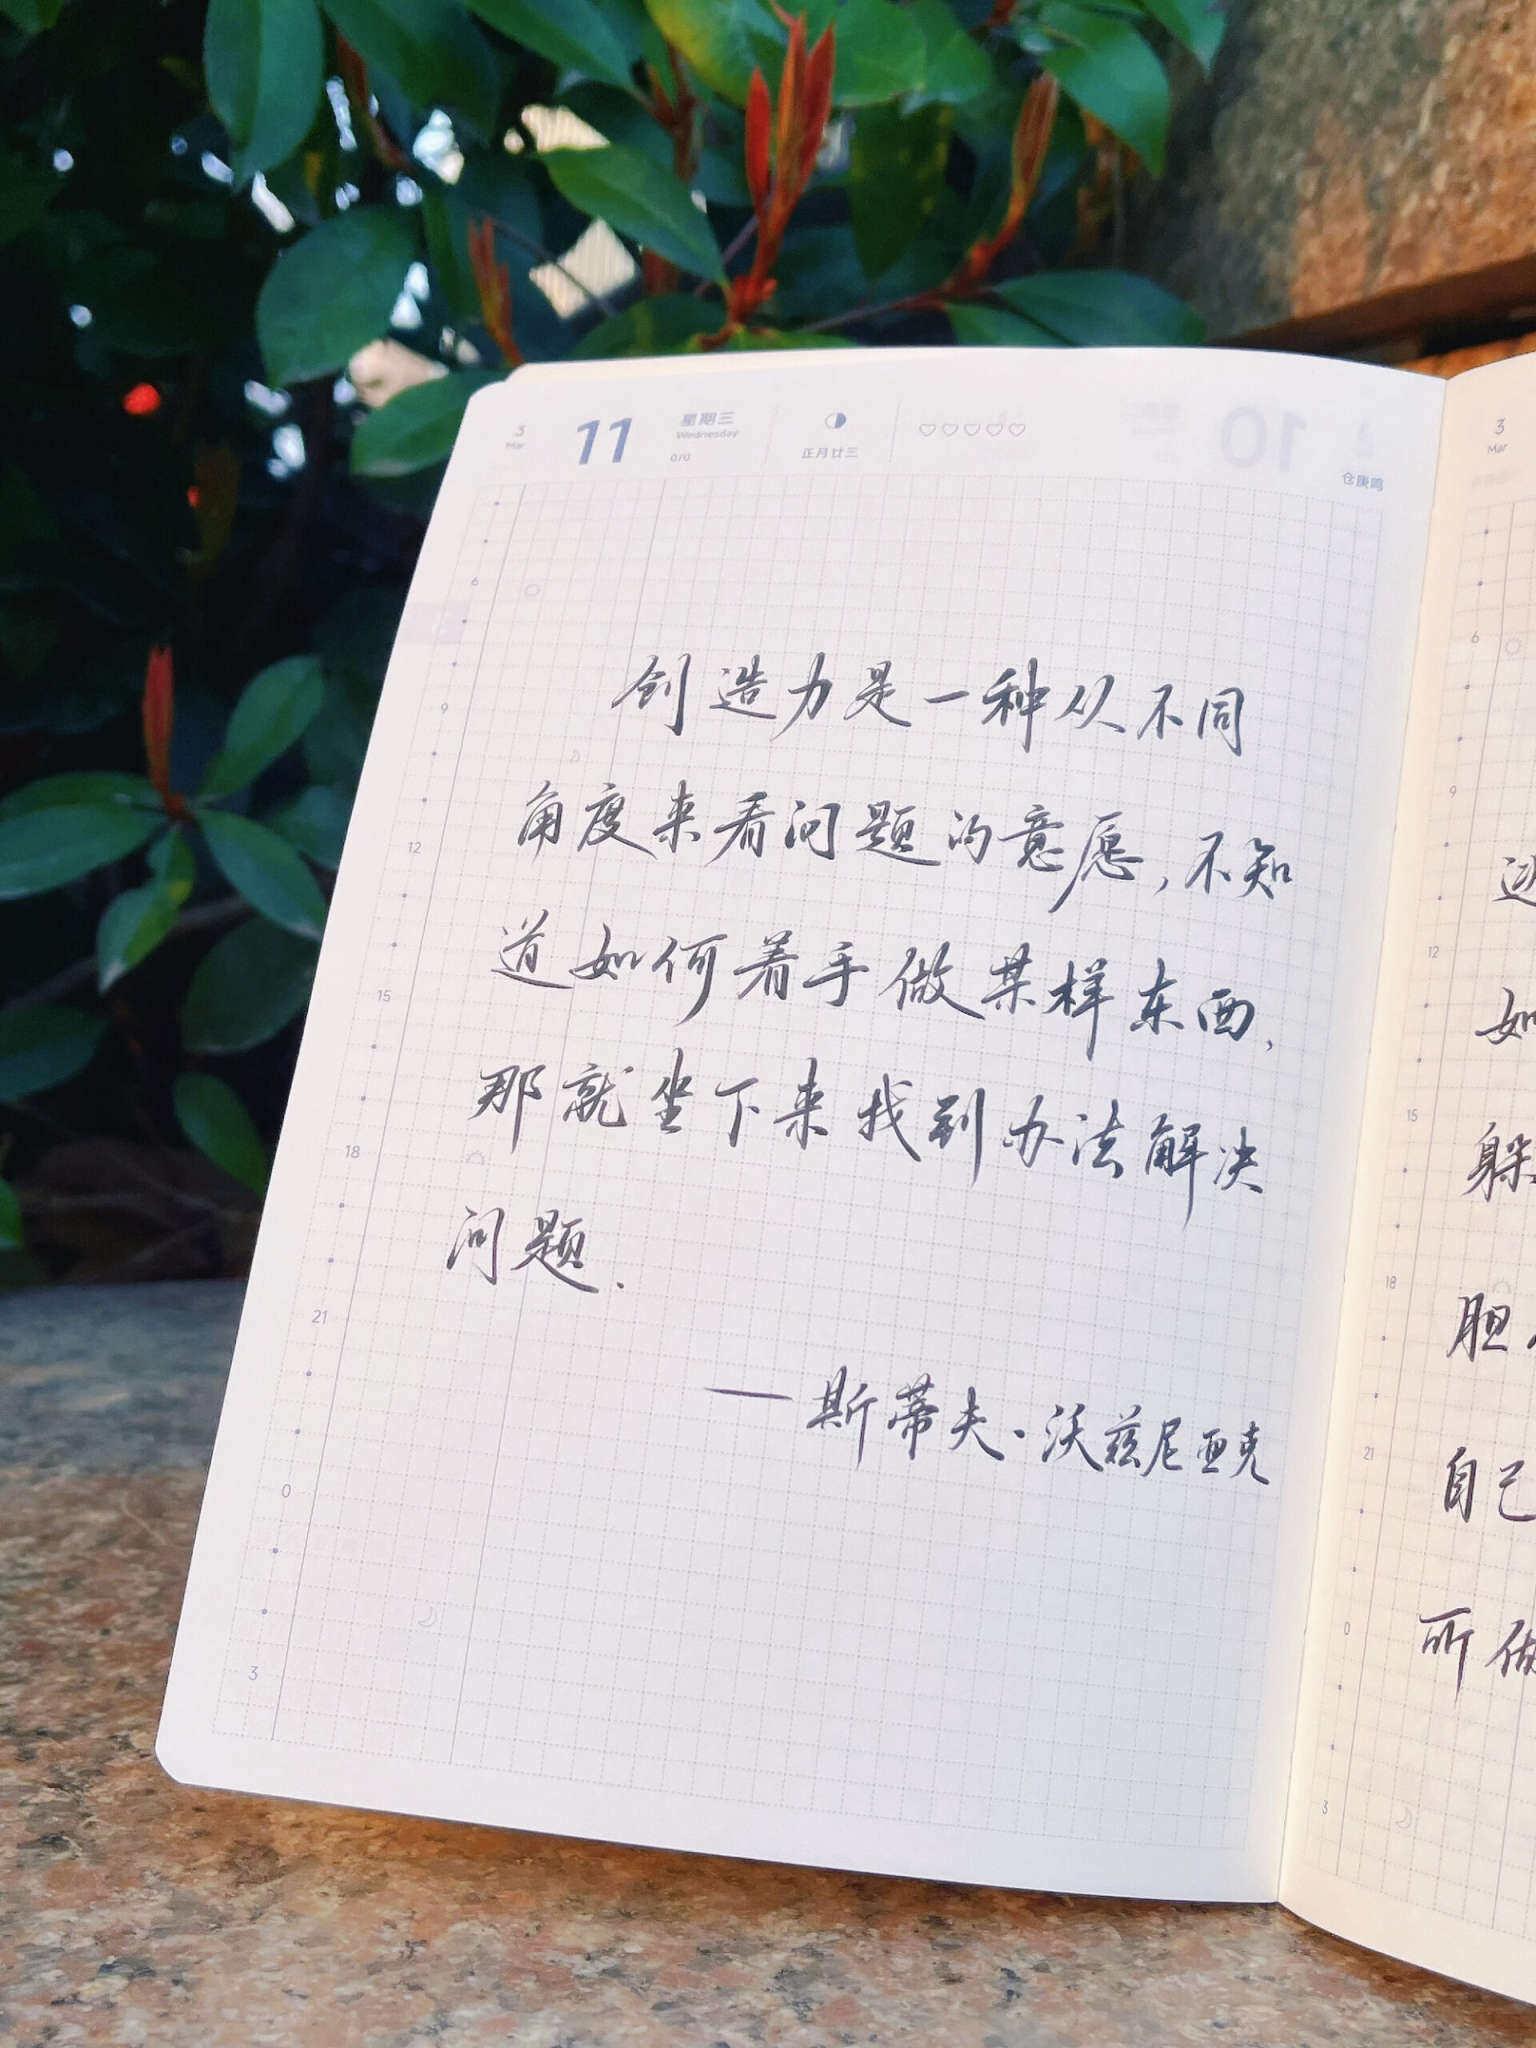 3
Mar
11
星期三
Wednesday
0/0
正月廿三
仓庚鸣
6
9
12
15
18
21
0
3
创造力是一种从不同
角度来看问题的意愿,不知
道如何着手做某样东西,
那就坐下来找到办法解决
问题.
——斯蒂夫·沃兹尼亚克
3
Mar
6
9
12
15
18
21
0
3
如
躲
胆
自己
所做